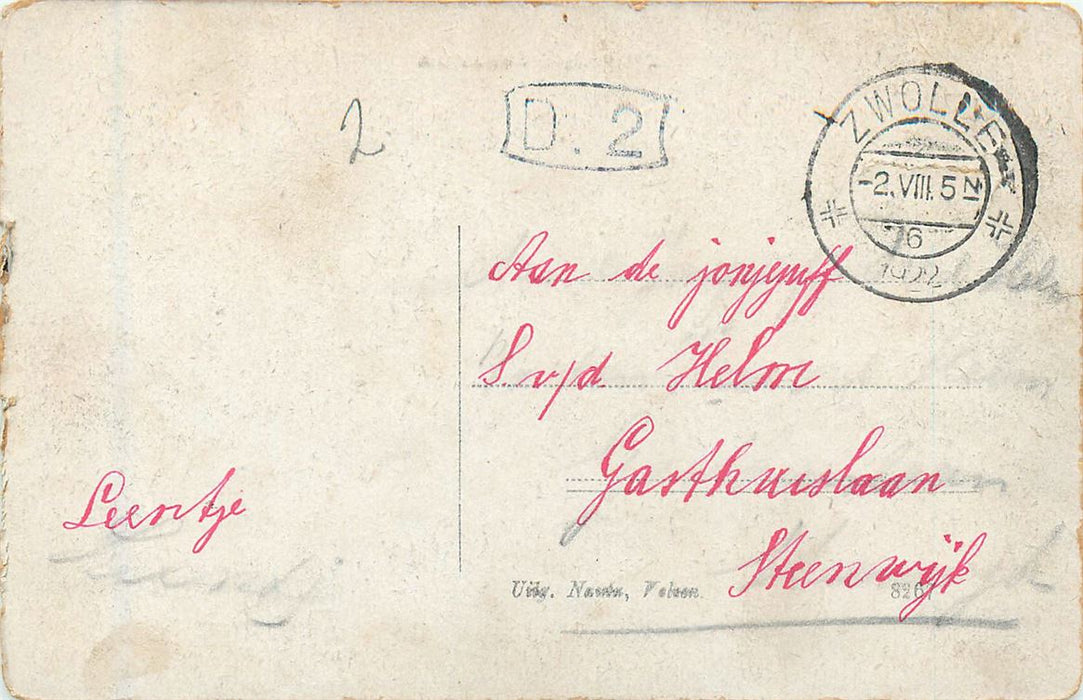 2
D. 2
ZWOLLE
-2.VIII. 5
6
1922
Aan de
S. v/d Helm
Gasthuislaan
Steenwijk
Leentje
Uitg. Nauta, Velsen.
8267